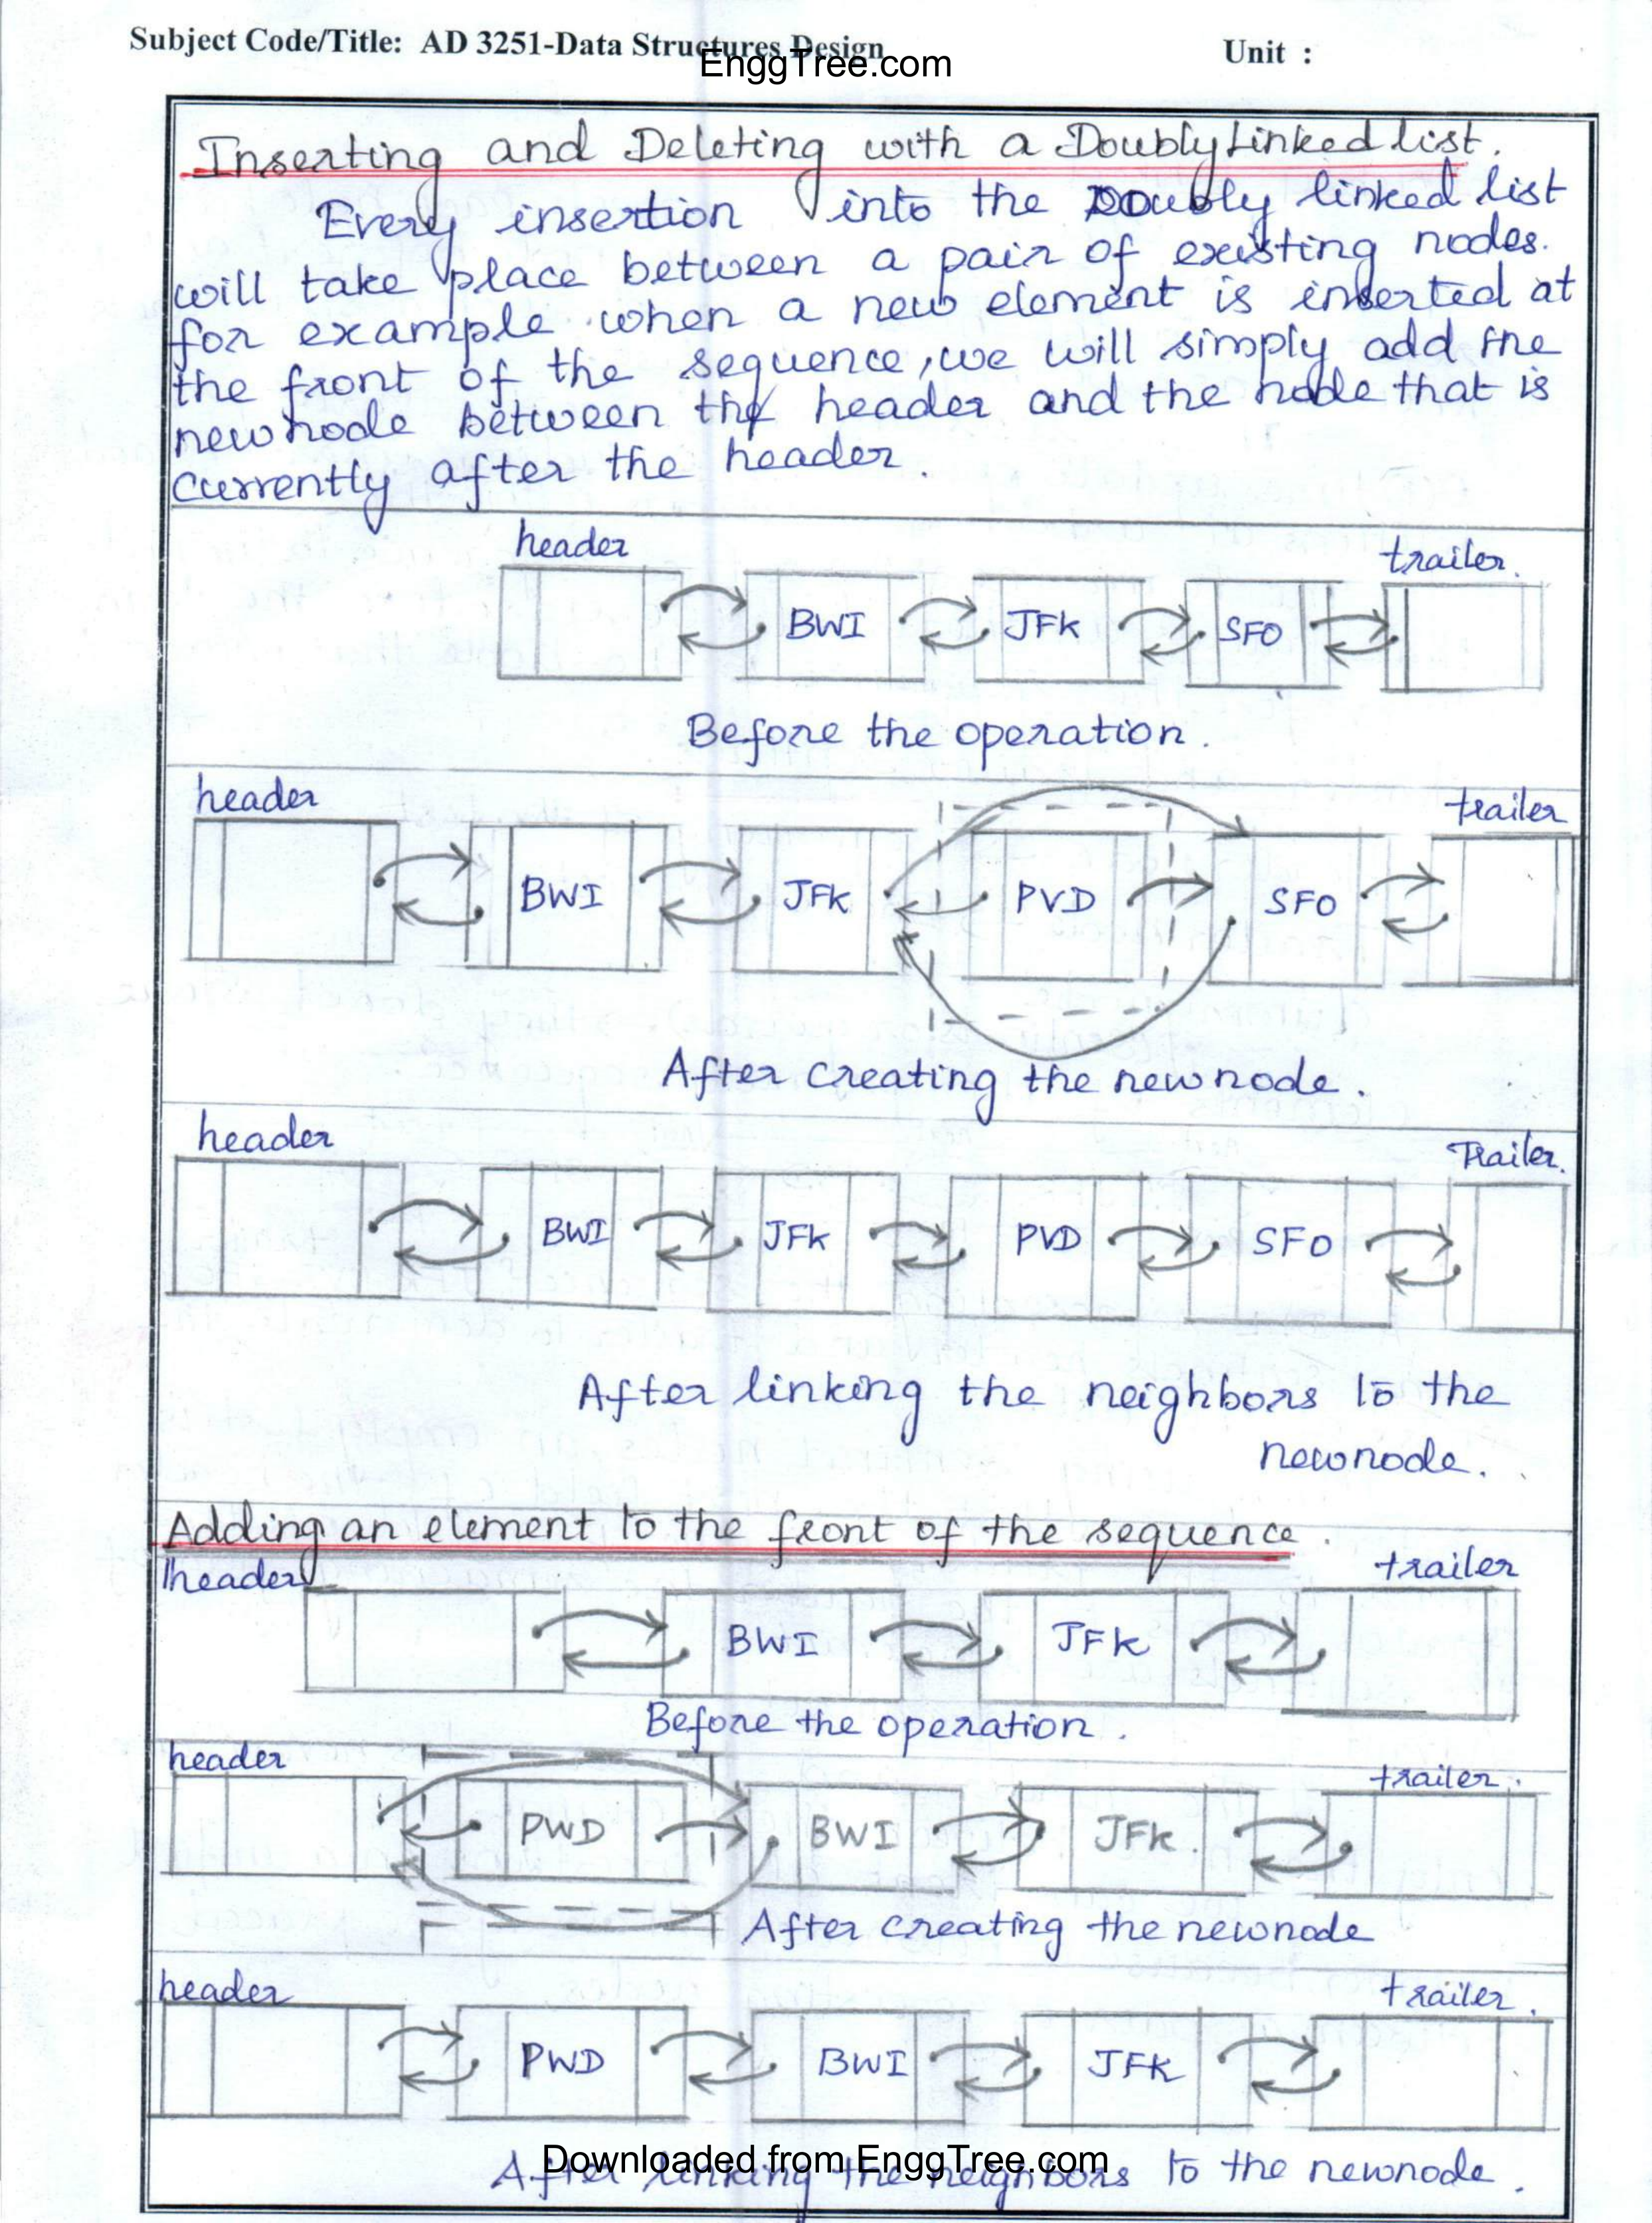 Subject Code/Title: AD 3251-Data Structures Design
EnggTree.com
Unit :
Inserting and Deleting with a Doubly Linked list.
Every insertion into the Doubly linked list
will take place between a pair of existing nodes.
for example when a new element is inserted at
the front of the sequence, we will simply add the
newnode between the header and the node that is
currently after the header.
header trailer.
BWI JFK SFO
Before the operation.
header trailer
BWI JFK PVD SFO
After creating the newnode.
header Trailer.
BWI JFK PVD SFO
After linking the neighbors to the
newnode.
Adding an element to the front of the sequence.
header trailer
BWI JFK
Before the operation.
header trailer.
PWD BWI JFK.
After creating the newnode
header trailer.
PWD BWI JFK
Downloaded from EnggTree.com
After linking the neighbors to the newnode.